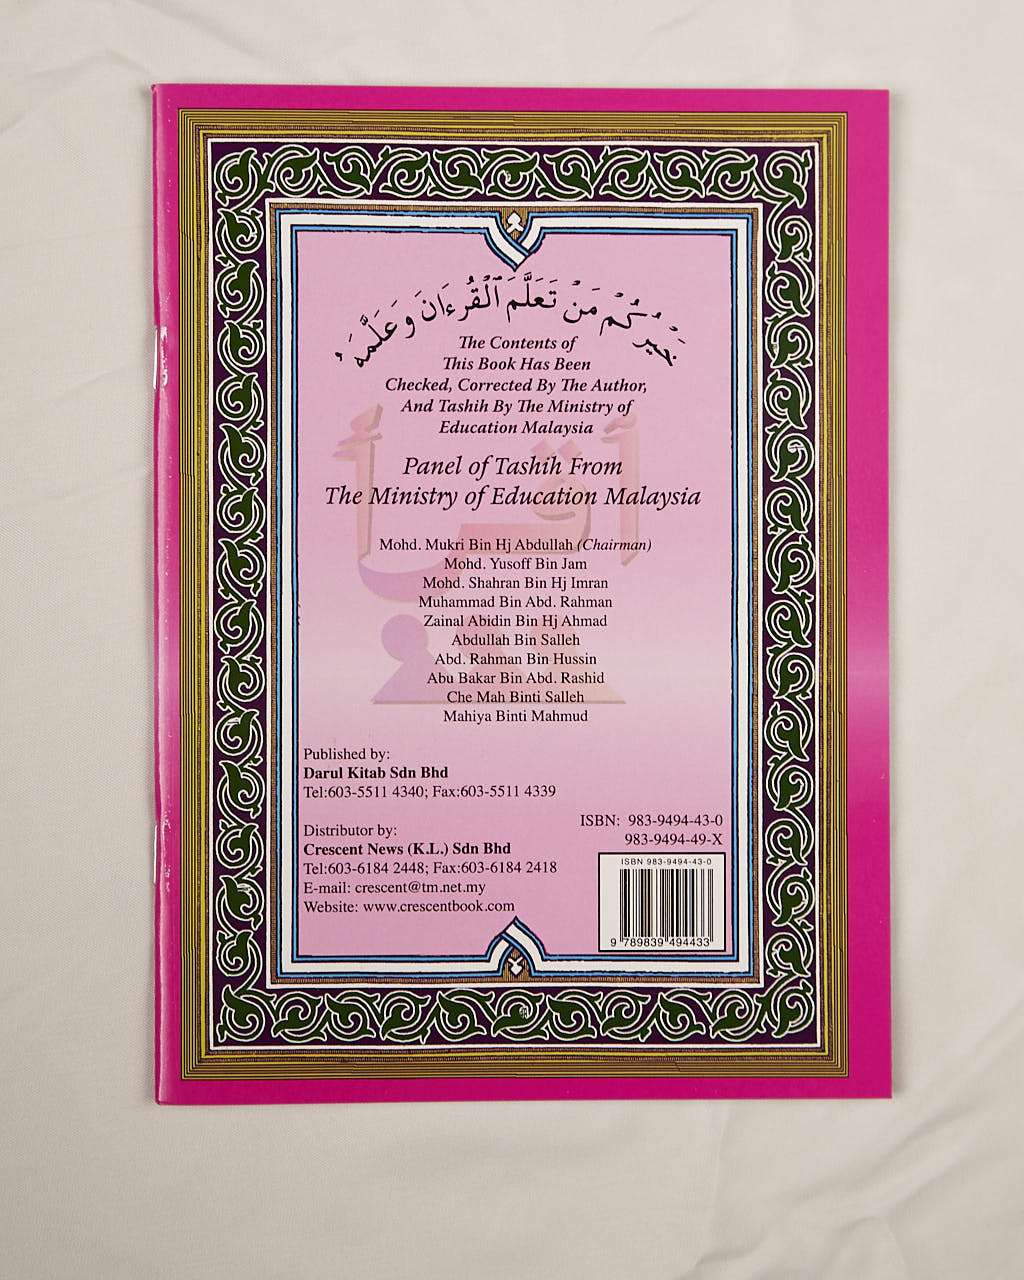 خَيْرُكُم مَنْ تَعَلَّمَ ٱلْقُرْءَانَ وَعَلَّمَهُ
The Contents of
This Book Has Been
Checked, Corrected By The Author,
And Tashih By The Ministry of
Education Malaysia
Panel of Tashih From
The Ministry of Education Malaysia
Mohd. Mukri Bin Hj Abdullah (Chairman)
Mohd. Yusoff Bin Jam
Mohd. Shahran Bin Hj Imran
Muhammad Bin Abd. Rahman
Zainal Abidin Bin Hj Ahmad
Abdullah Bin Salleh
Abd. Rahman Bin Hussin
Abu Bakar Bin Abd. Rashid
Che Mah Binti Salleh
Mahiya Binti Mahmud
Published by:
Darul Kitab Sdn Bhd
Tel:603-5511 4340; Fax:603-5511 4339
Distributor by:
Crescent News (K.L.) Sdn Bhd
Tel:603-6184 2448; Fax:603-6184 2418
E-mail: crescent@tm.net.my
Website: www.crescentbook.com
ISBN: 983-9494-43-0
983-9494-49-X
ISBN 983-9494-43-0
9 789839 494433